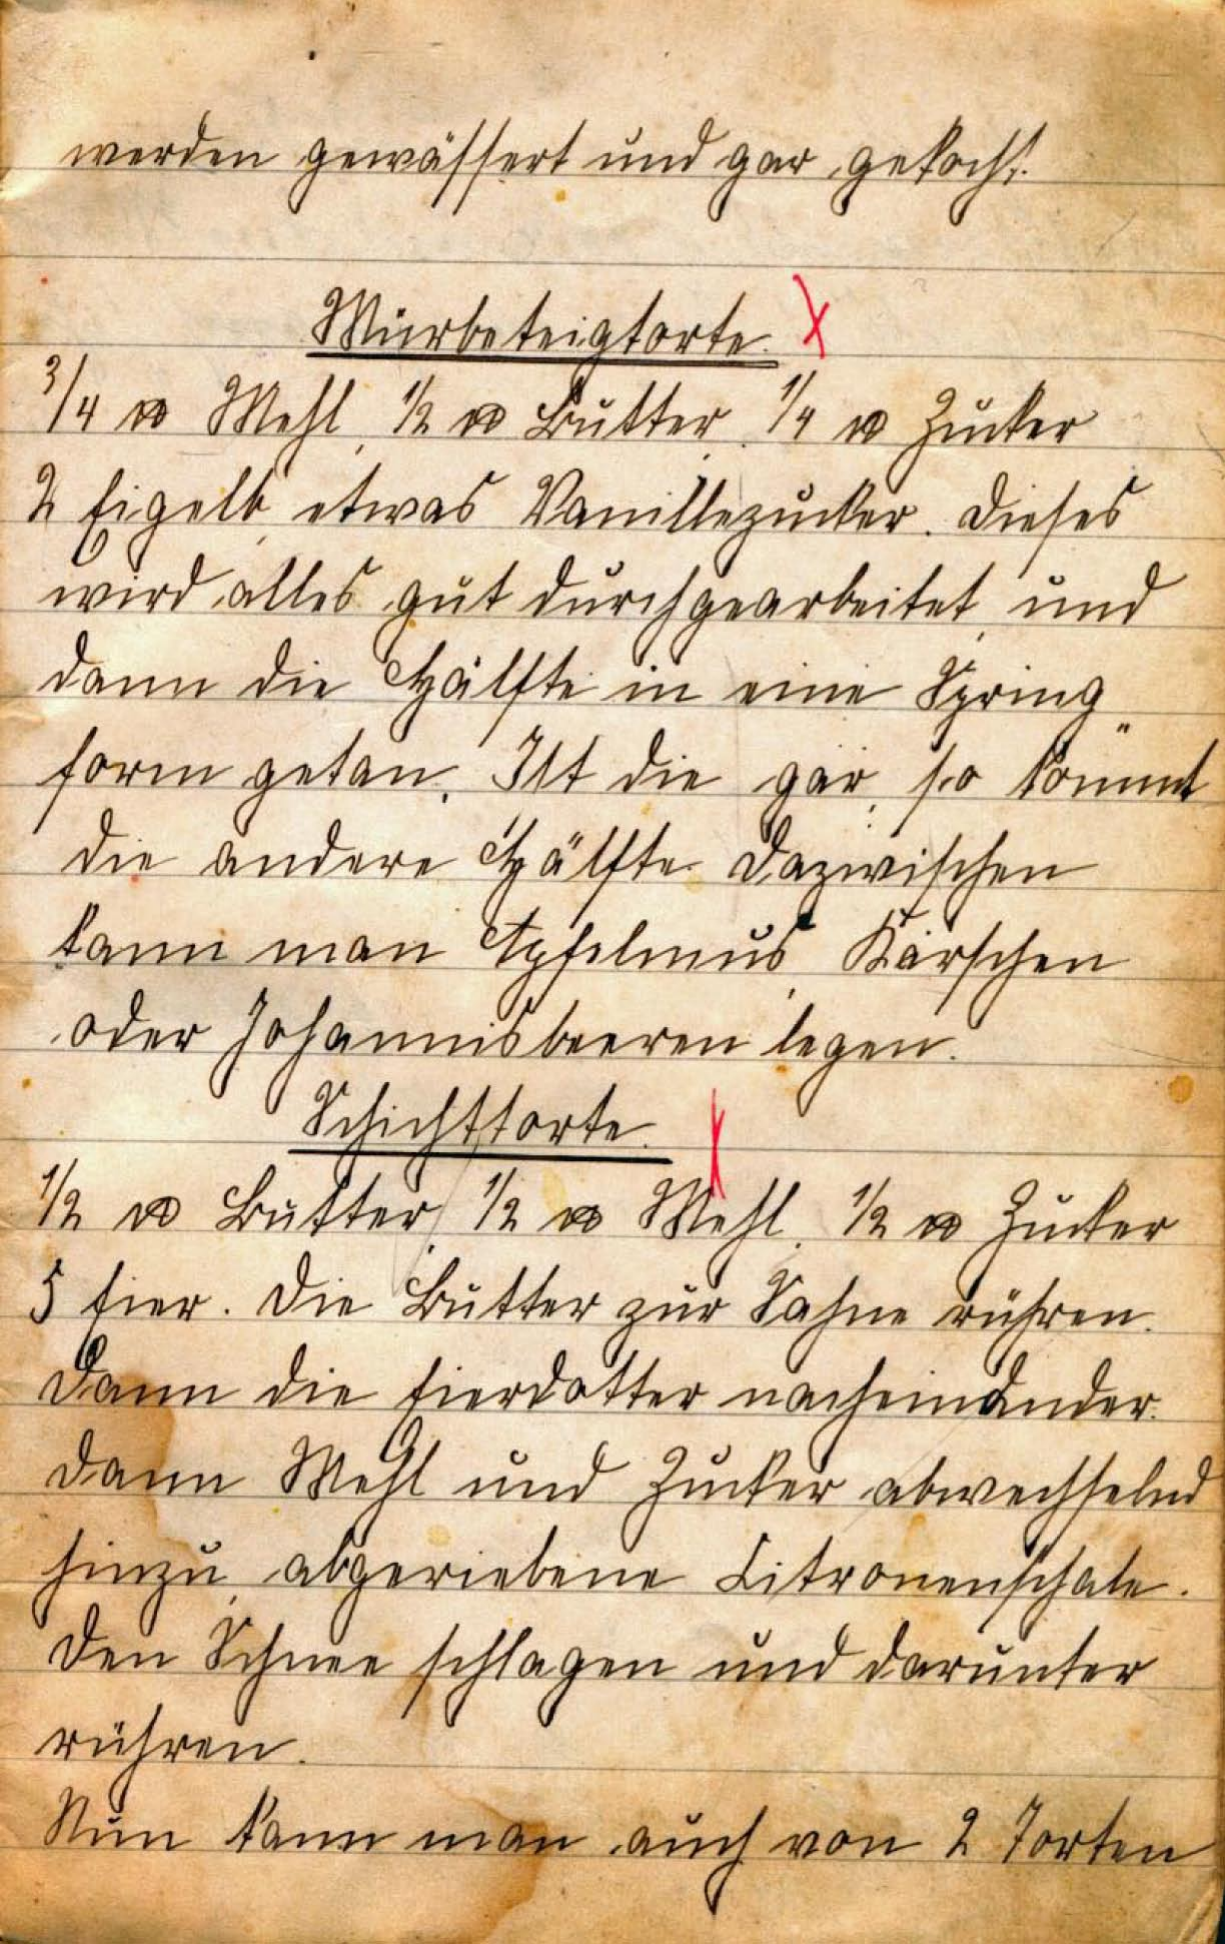 werden gewässert und gar gekocht.
Mürbeteigtorte.
3/4 ℔ Mehl, 1/2 ℔ Butter, 1/4 ℔ Zucker
2 Eigelb, etwas Vanillezucker. Dieses
wird alles gut durchgearbeitet und
dann die Hälfte in eine Spring„
form getan. Ist die gar, so kommt
die andere Hälfte. Dazwischen
kann man Apfelmus, Kirschen
oder Johannisbeeren legen.
Schichttorte.
1/2 ℔ Butter, 1/2 ℔ Mehl, 1/2 ℔ Zucker
5 Eier. Die Butter zur Sahne rühren.
Dann die Eierdotter nacheinander.
Dann Mehl und Zucker abwechselnd
hinzu, abgeriebene Citronenschale.
Den Schnee schlagen und darunter
rühren.
Nun kann man auch von 2 Torten